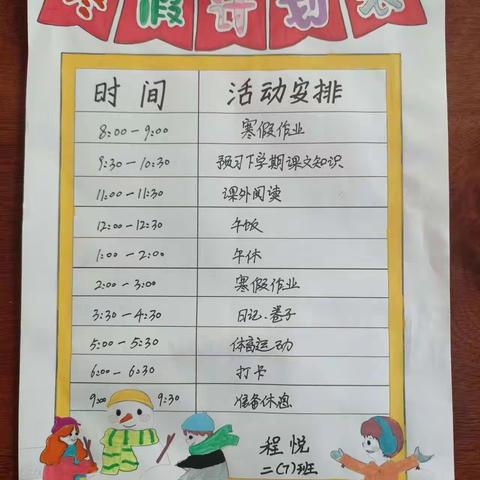 寒假计划表
时间 活动安排
8:00-9:00 寒假作业
9:30-10:30 预习下学期课文知识
11:00-11:30 课外阅读
12:00-12:30 午饭
1:00-2:00 午休
2:00-3:00 寒假作业
3:30-4:30 日记.卷子
5:00-5:30 体育运动
6:00-6:30 打卡
9:00 9:30 准备休息
程悦
二(7)班